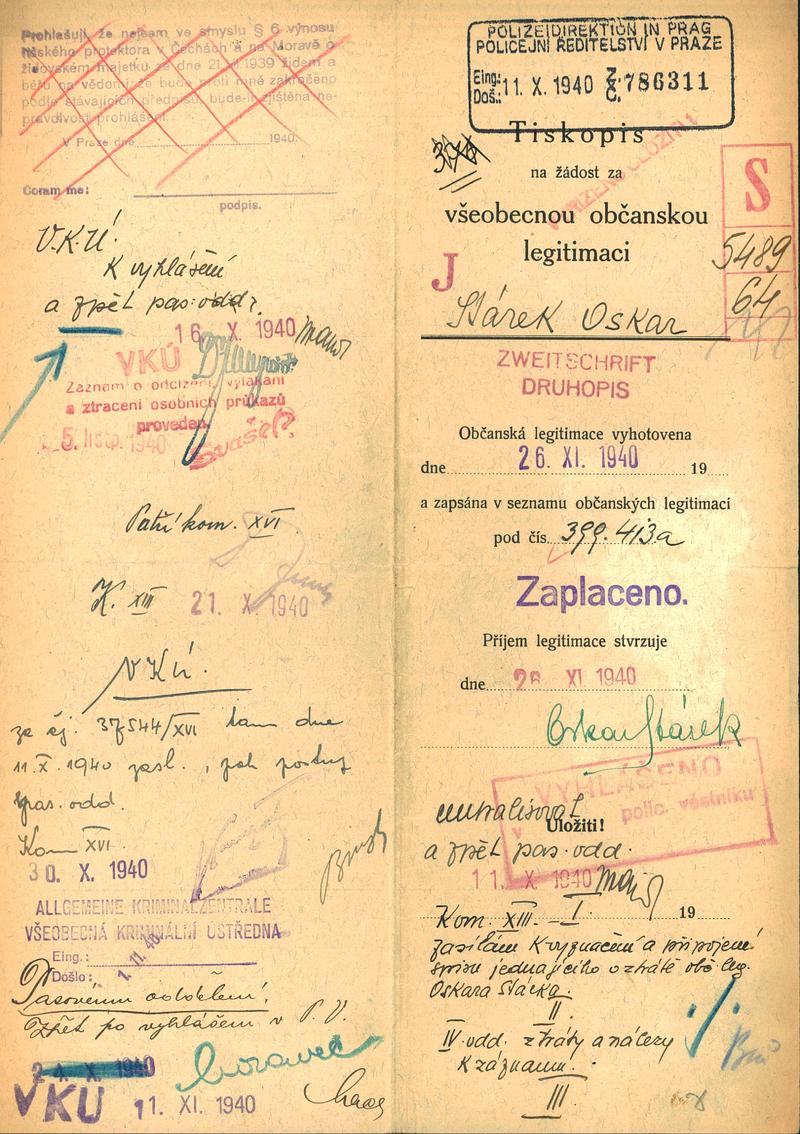 Prohlašuji, že nejsem ve smyslu § 6 výnosu
říšského protektora v Čechách a na Moravě o
židovském majetku ze dne 21. 1939 židem a
béřu na vědomí, že bude proti mně zakročeno
podle stávajících předpisů, bude-li zjištěna ne-
pravdivost prohlášení.
V Praze dne 1940.
Coram me:
podpis.
V.K.Ú.
K vyhlášení
a zpět pas. odd.
16. X. 1940
VKÚ
Záznam o odcizení, vylákání
a ztracení osobních průkazů
proveden.
5. listp. 1940
Patří kom. XVI
K. XIII 21. X. 1940
VKÚ.
ze čj. 37544/XVI tam dne
11. X. 1940 zasl.,
pas. odd.
Kom XVI
30. X. 1940
ALLGEMEINE KRIMINALZENTRALE
VŠEOBECNÁ KRIMINÁLNÍ ÚSTŘEDNA
Eing.:
Došlo: 1. 11. 40
Pasovému oddělení,
Zpět po vyhlášení v P. V.
24. X. 1940
VKU 11. XI. 1940
POLIZEIDIREKTION IN PRAG
POLICEJNÍ ŘEDITELSTVÍ V PRAZE
Eing.:
Doš.: 11. X. 1940 Z. Č. 786311
Tiskopis
na žádost za
všeobecnou občanskou
legitimaci
S
5489
64
J
Stárek Oskar
ZWEITSCHRIFT
DRUHOPIS
Občanská legitimace vyhotovena
dne 26. XI. 1940 19
a zapsána v seznamu občanských legitimací
pod čís. 399.413a
Zaplaceno.
Příjem legitimace stvrzuje
dne 26 XI 1940
Oskar Stárek
VYHLÁŠENO
v polic. věstníku
centralisoval
Uložiti!
a zpět pas. odd.
11. X. 1940
Kom. XIII. – I. 19
zasílám k vyznačení a připojení
spisu jednajícího o ztrátě obč. leg.
Oskara Stárka.
II.
IV. odd. ztráty a nálezy
k záznamu.
III